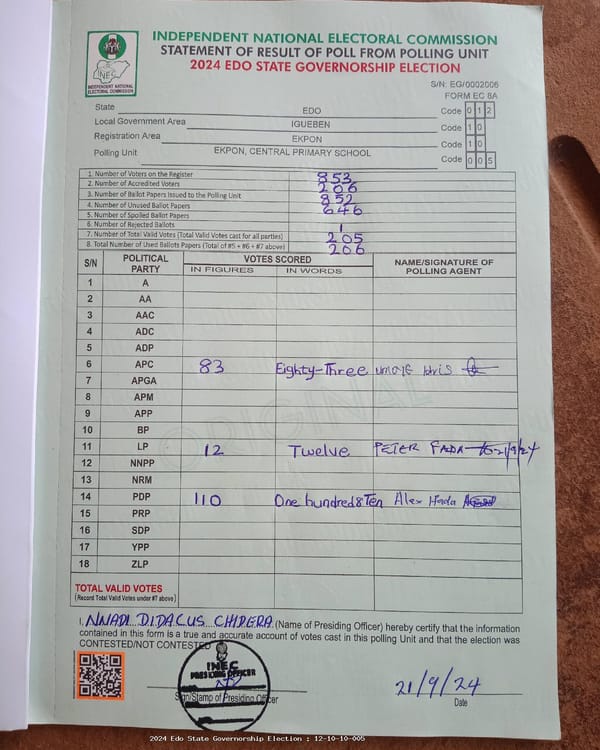 INDEPENDENT NATIONAL ELECTORAL COMMISSION
STATEMENT OF RESULT OF POLL FROM POLLING UNIT
2024 EDO STATE GOVERNORSHIP ELECTION
INEC
INDEPENDENT NATIONAL
ELECTORAL COMMISSION
S/N: EG/0002006
FORM EC 8A
State EDO Code 0 1 2
Local Government Area IGUEBEN Code 1 0
Registration Area EKPON Code 1 0
Polling Unit EKPON, CENTRAL PRIMARY SCHOOL Code 0 0 5
1. Number of Voters on the Register 853
2. Number of Accredited Voters 206
3. Number of Ballot Papers Issued to the Polling Unit 852
4. Number of Unused Ballot Papers 646
5. Number of Spoiled Ballot Papers
6. Number of Rejected Ballots 1
7. Number of Total Valid Votes (Total Valid Votes cast for all parties) 205
8. Total Number of Used Ballots Papers (Total of #5 + #6 + #7 above) 206
S/N POLITICAL PARTY VOTES SCORED NAME/SIGNATURE OF POLLING AGENT
IN FIGURES IN WORDS
1 A
2 AA
3 AAC
4 ADC
5 ADP
6 APC 83 Eighty-Three
7 APGA
8 APM
9 APP
10 BP
11 LP 12 Twelve PETER FADA 21/9/24
12 NNPP
13 NRM
14 PDP 110 One hundred & Ten Alex Hada
15 PRP
16 SDP
17 YPP
18 ZLP
ORIGINAL
TOTAL VALID VOTES
(Record Total Valid Votes under #7 above)
I, NNADI DIDACUS CHIDERA (Name of Presiding Officer) hereby certify that the information
contained in this form is a true and accurate account of votes cast in this polling Unit and that the election was
CONTESTED/NOT CONTESTED
INEC
PRESIDING OFFICER
Sign/Stamp of Presiding Officer
21/9/24
Date
2024 Edo State Governorship Election : 12-10-10-005